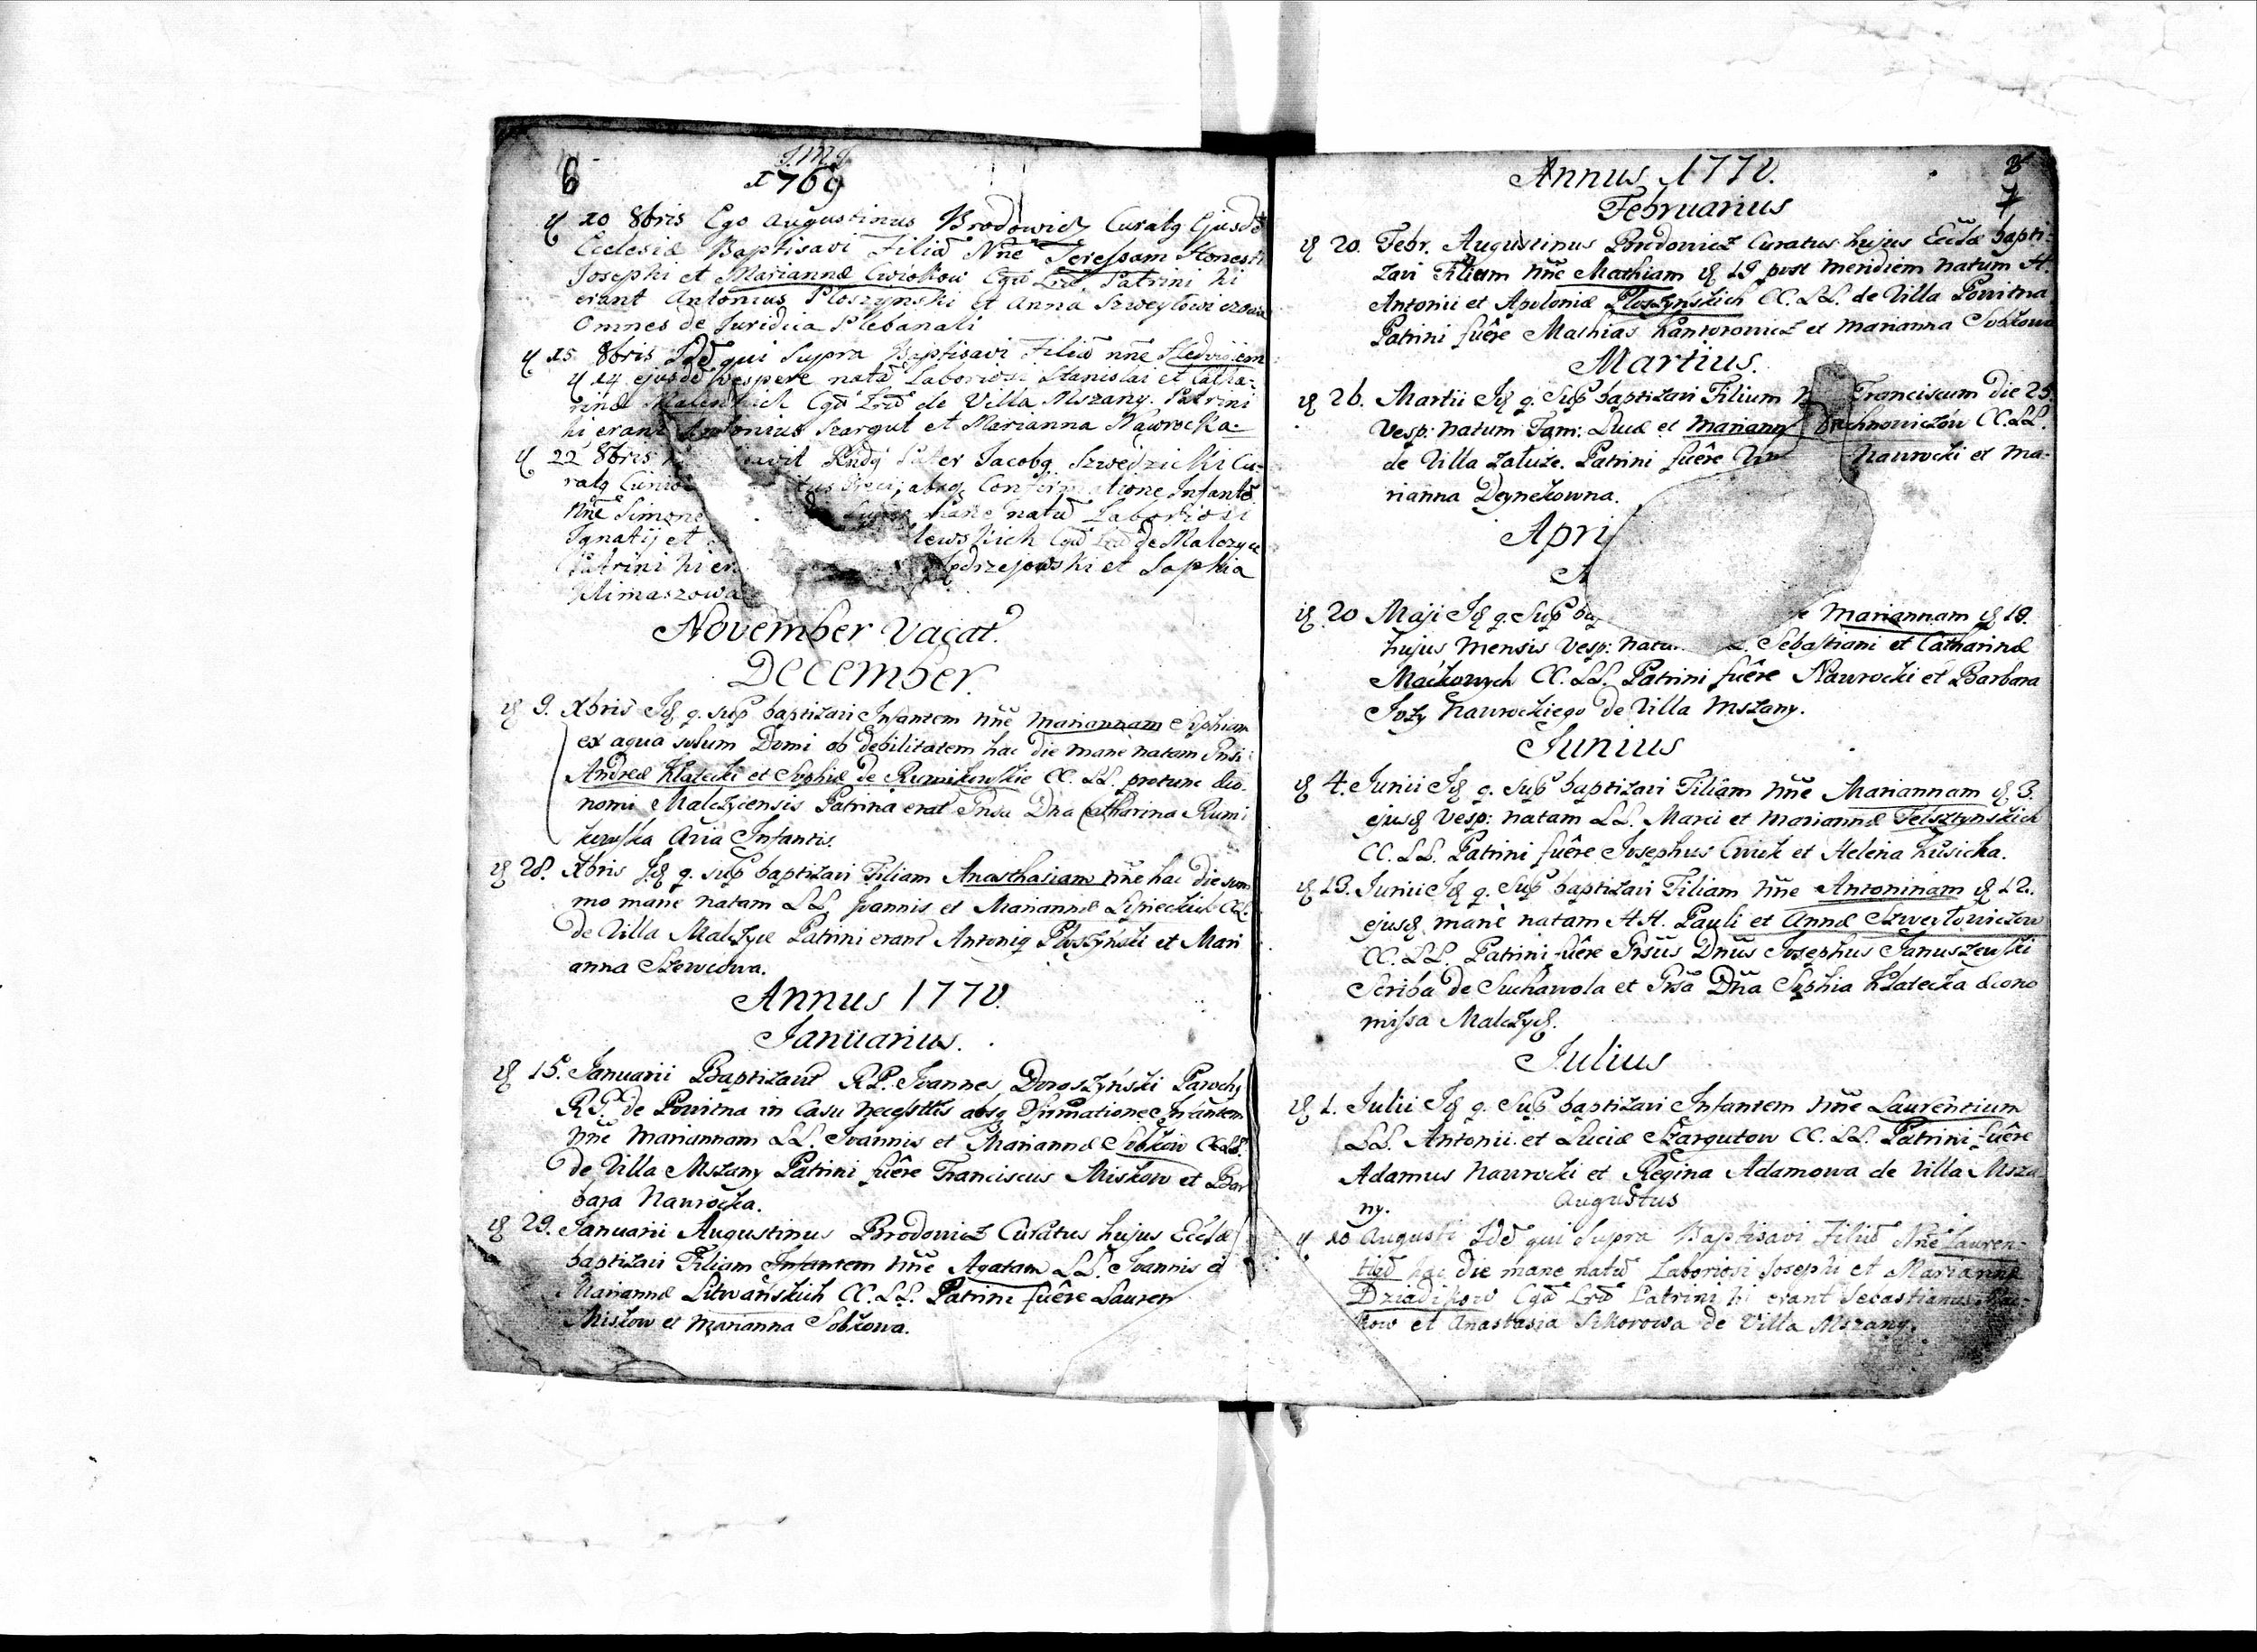 6
J.M.J.
1769
10 8bris Ego Augustinus Brodowicz Curatq Ejusdē
Ecclesiæ Baptisavi Filiā Nñe Teressam Honesti
Josephi et Mariannæ Cwiokow Patrini hi
erant Antonius Ploszynski et Anna
Omnes de Juridica Plebanali
15 8bris Idē qui Supra Baptisavi Filiā nñe Hedvigem
14 ejusdē Vespere natā Laboriosi Stanislai et Catha-
rinæ de Villa Mszany. Patrini
hi erant Antonius Szargut et Marianna Nawrocka
22 8bris Pater Jacobq Szwedzicki Cu-
ratq absq Infantē
Nñe Simone mane natū Laboriosi
Ignatij et lewskich de Malczyce
Patrini hi er et Sophia
Klimaszowa
November Vacat.
December.
9. Xbris Iq q. sup baptizavi Infantem nñe Mariannam Sophiam
ex aqua solum Domi ob debilitatem hac die mane natam
Andreæ Klatecki et Sophiæ de CC. LL. protunc œco-
nomi Malczyciensis Patrina erat Dna Catharina Rumi
Avia Infantis.
28. Xbris Iq q. sup baptizavi Filiam Anasthasiam nñe hac die sum
mo mane natam LL. Joannis et Mariannæ Lipieckich CC.
de Villa Malczyce Patrini erant Antoniq Płoszyński et Mari
anna Szewcowa.
Annus 1770.
Januarius.
15. Januarii Baptizavit R.P. Joannes Doroszyński Parochq
de Powitna in Casu absq Infantem
nñe Mariannam LL. Joannis et Mariannæ Sobkow CC. LL.
de Villa Mszany Patrini fuêre Franciscus Miskow et Bar
bara Nawrocka.
29. Januarii Augustinus Brodowicz Curatus hujus Eccłæ
baptizavi Filiam Infantem nñe Agatam LL. Joannis et
Mariannæ Litwańskich CC. LL. Patrini fuêre Lauren
Miskow et Marianna Sobkowa.
Annus 1770.
7
Februarius
20. Febr. Augustinus Brodowicz Curatus hujus Eccłæ bapti-
zavi Filium nñe Mathiam 19 post meridiem natum H.
Antonii et Apoloniæ Płoszyńskich CC. LL. de Villa Powitna
Patrini fuêre Mathias Kantorowicz et Marianna Sobkowa
Martius.
26. Martii Iq q. Sup baptizavi Filium Franciscum die 25.
Vesp: natum Fam: Lucæ et Mariann chnowiczów CC. LL.
de Villa Załuże. Patrini fuêre Nawrocki et Ma-
rianna Deynekowna.
Apri
20 Maji Iq q. Sup Mariannam 19.
hujus Mensis Vesp: natam Sebastiani et Catharinæ
Maćkowych CC. LL. Patrini fuêre Nawrocki et Barbara
Nawrockiego de Villa Mszany.
Junius
4. Junii Iq q. Sup baptizavi Filiam nñe Mariannam 3.
ejusq Vesp: natam LL. Marci et Mariannæ Felsztyńskich
CC. LL. Patrini fuêre Josephus Cwiok et Helena Kusicka.
13. Junii Iq q. Sup baptizavi Filiam nñe Antoninam 12.
ejusq manè natam H.H. Pauli et Annæ
CC. LL. Patrini fuêre Dñus Josephus Januszewski
Scriba de Suchawola et Dña Sophia Klatecka œcono
missa Malczyq.
Julius
1. Julii Iq q. Sup baptizavi Infantem nñe Laurentium
LL. Antonii et Luciæ Szargutow CC. LL. Patrini fuêre
Adamus Nawrocki et Regina Adamowa de Villa Msza
ny.
Augustus
10 Augusti Idē qui Supra Baptisavi Filiū Nñe Lauren-
tiū hac die mane natū Laboriosi Josephi et Mariannæ
Dziadikow Patrini hi erant Sebastianus
kow et Anastasia Sikorowa de Villa Mszany.